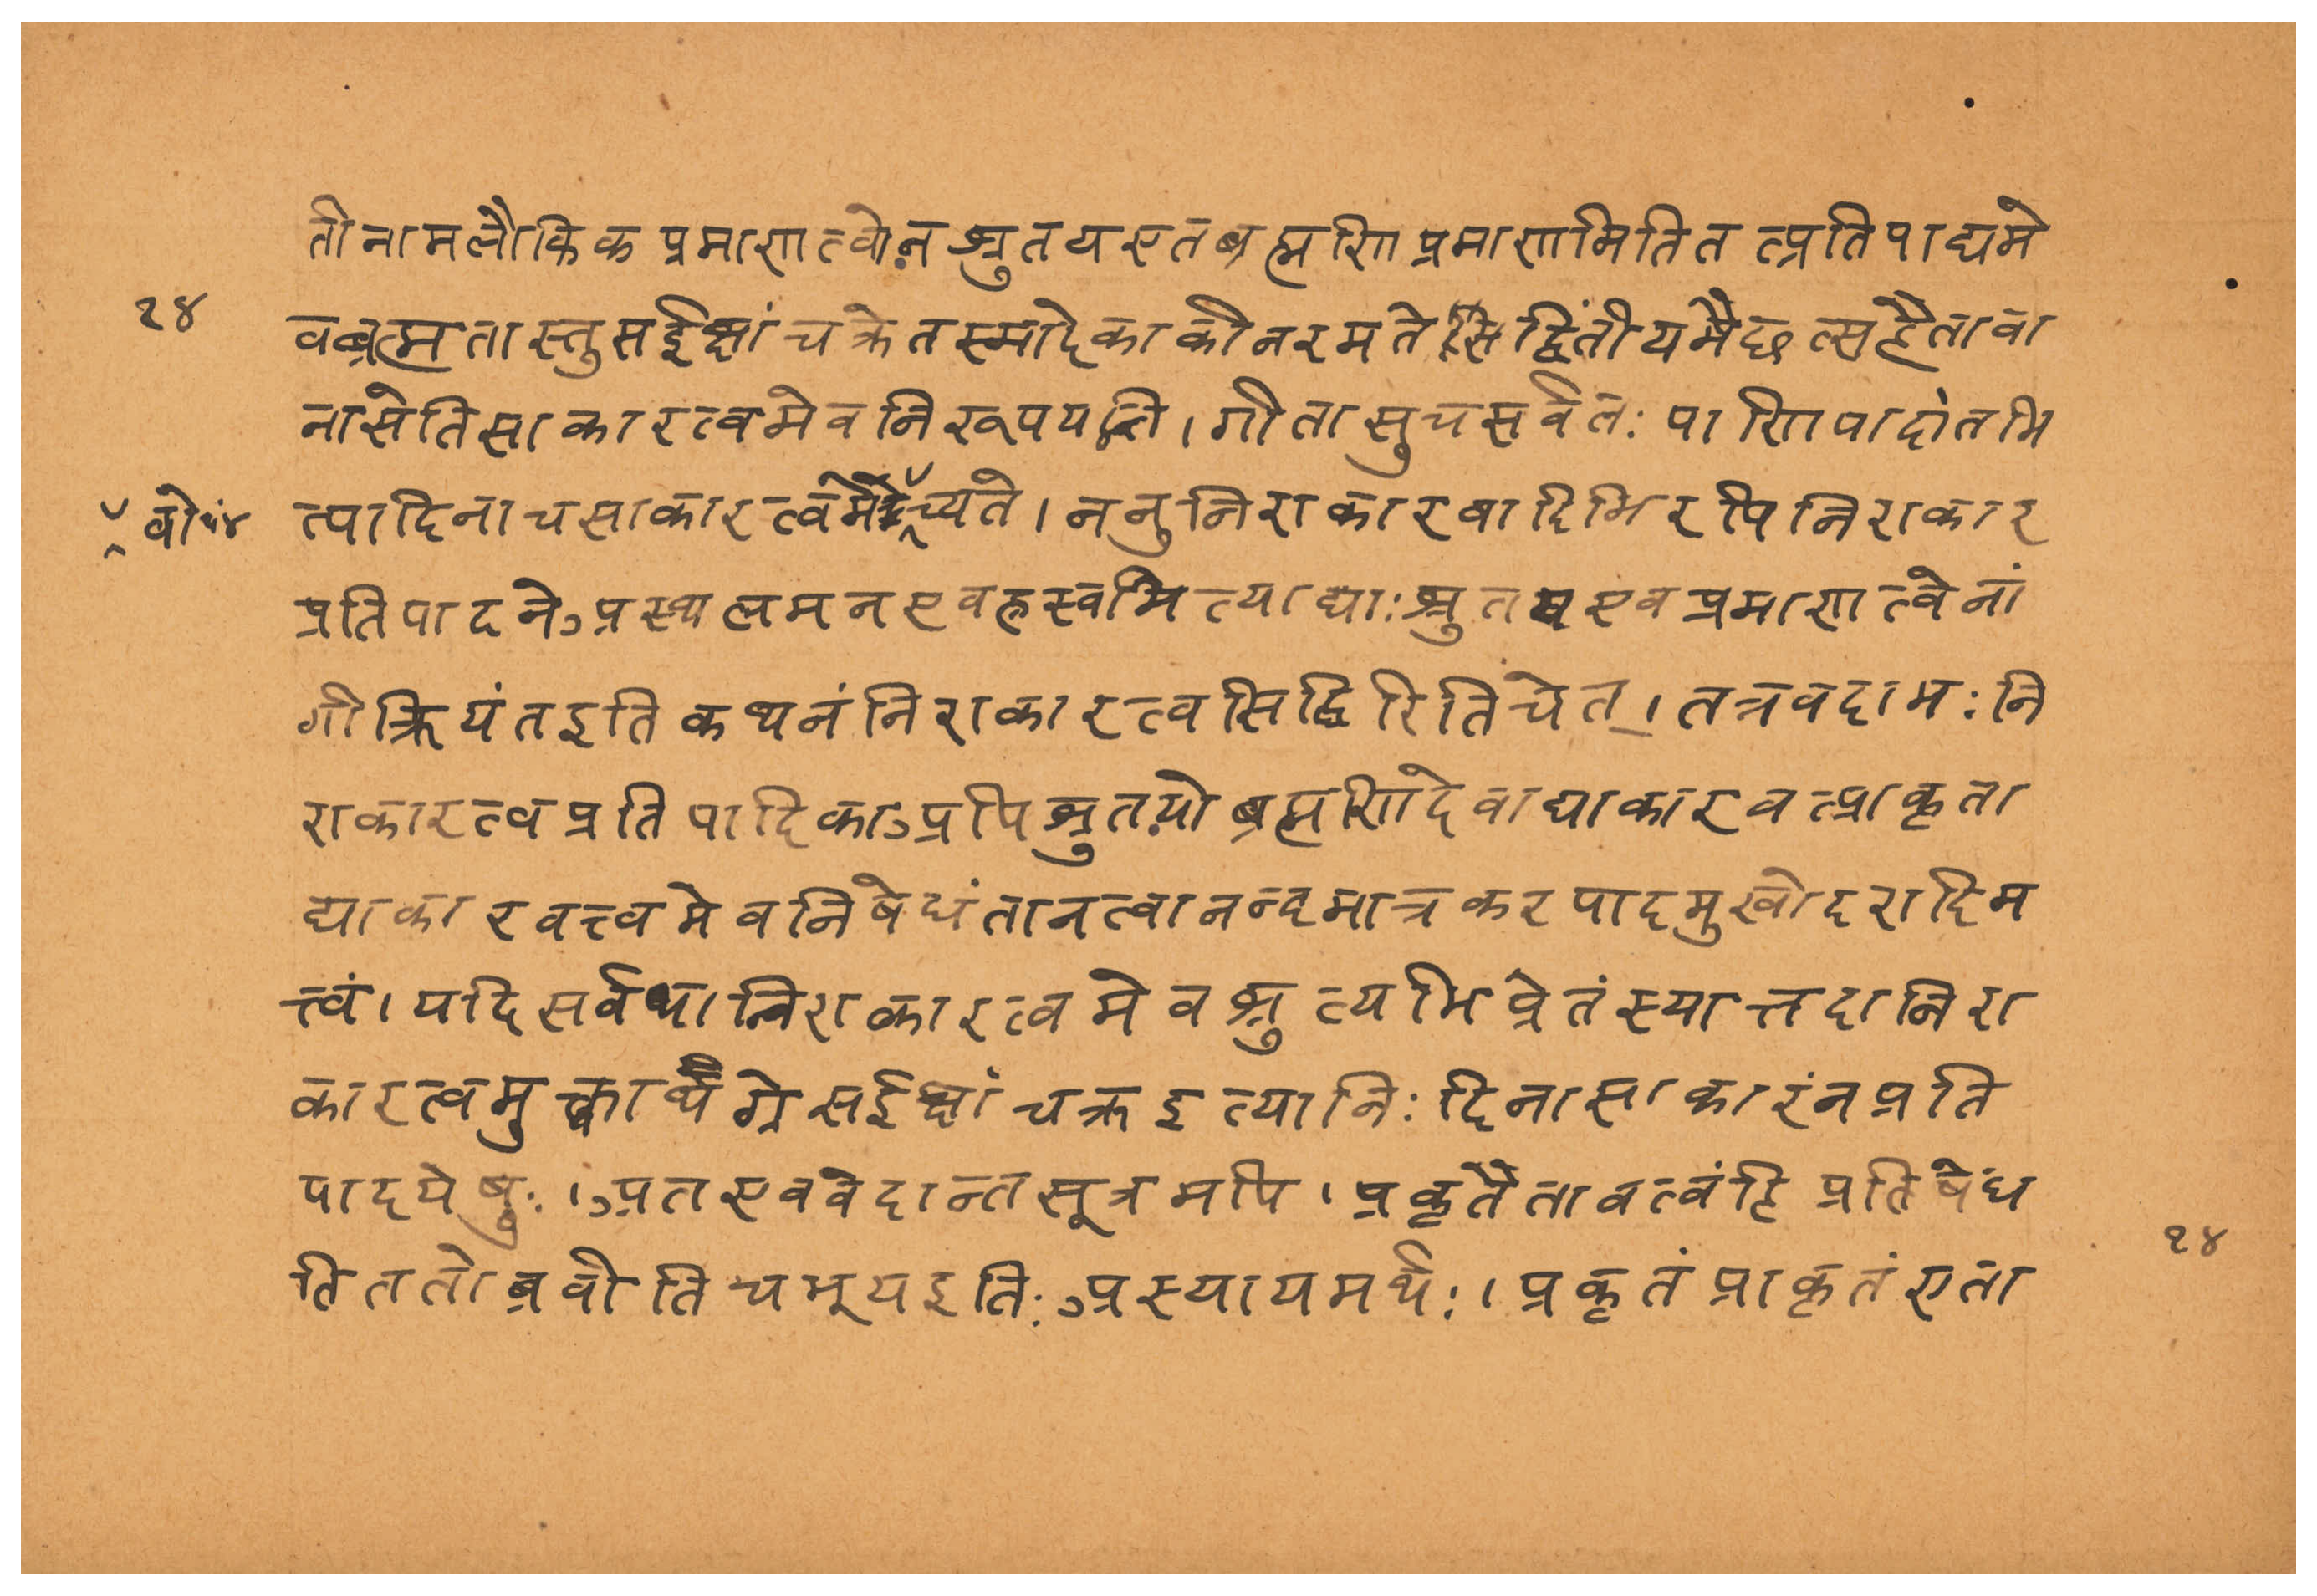 तीनामलौकिकप्रमाणत्वेन श्रुतय एत ब्रह्मणि प्रमाणमिति तत्प्रतिपाद्यमे
१४
वब्रह्म तास्तु सईक्षांचक्रे तस्मादेकाकी न रमते स द्वितीयमैछत्सहैतावा
नासेति साकारत्वमेव निरूपयन्ति । गीतासु च सर्वतः पाणिपादांतमि
वो ४
त्यादिना च साकारत्वमेच्यते । ननु निराकारवादिभिरपि निराकार
प्रतिपादने अस्थूलमनएवह्रस्वमित्याद्याः श्रुतय एव प्रमाणत्वेनां
गीक्रियंत इति कथनं निराकारत्वसिद्धिरिति चेत् । तत्र वदामः नि
राकारत्वप्रतिपादिका अपि श्रुतयो ब्रह्मणि देवाद्याकारवत्प्राकृता
द्याकारवत्त्वमेव निषेधंता नत्वानन्दमात्रकरपादमुखोदरादिम
त्त्वं । यदि सर्वथा निराकारत्वमेव श्रुत्यभिप्रेतं स्यात्तदा निरा
कारत्वमुक्त्वा ग्रे सईक्षांचक्र इत्यानिः दिना साकारं न प्रति
पादयेयुः । अत एव वेदान्तसूत्रमपि । प्रकृतैतावत्वं हि प्रतिषेध
ति ततो ब्रवीति च भूय इतिः अस्यायमर्थः । प्रकृतं प्राकृतं एता
१४